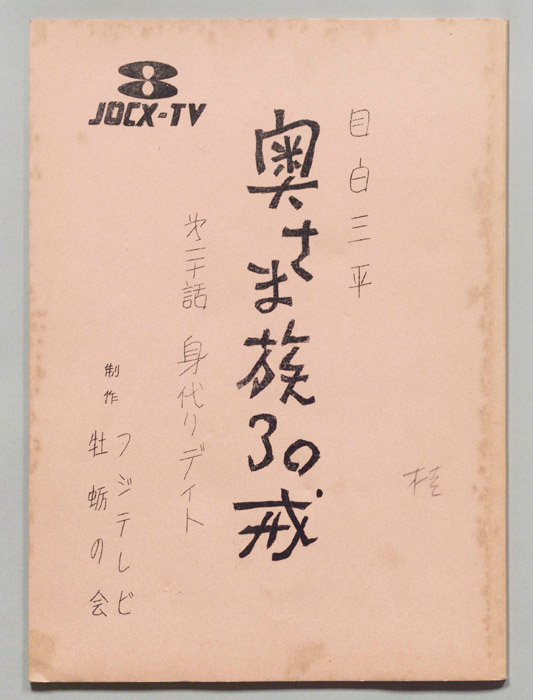 JOCX-TV
目白三平
奥さま族3の戒
㐧二十話 身代りデイト
制作 フジテレビ
牡蛎の会
桂